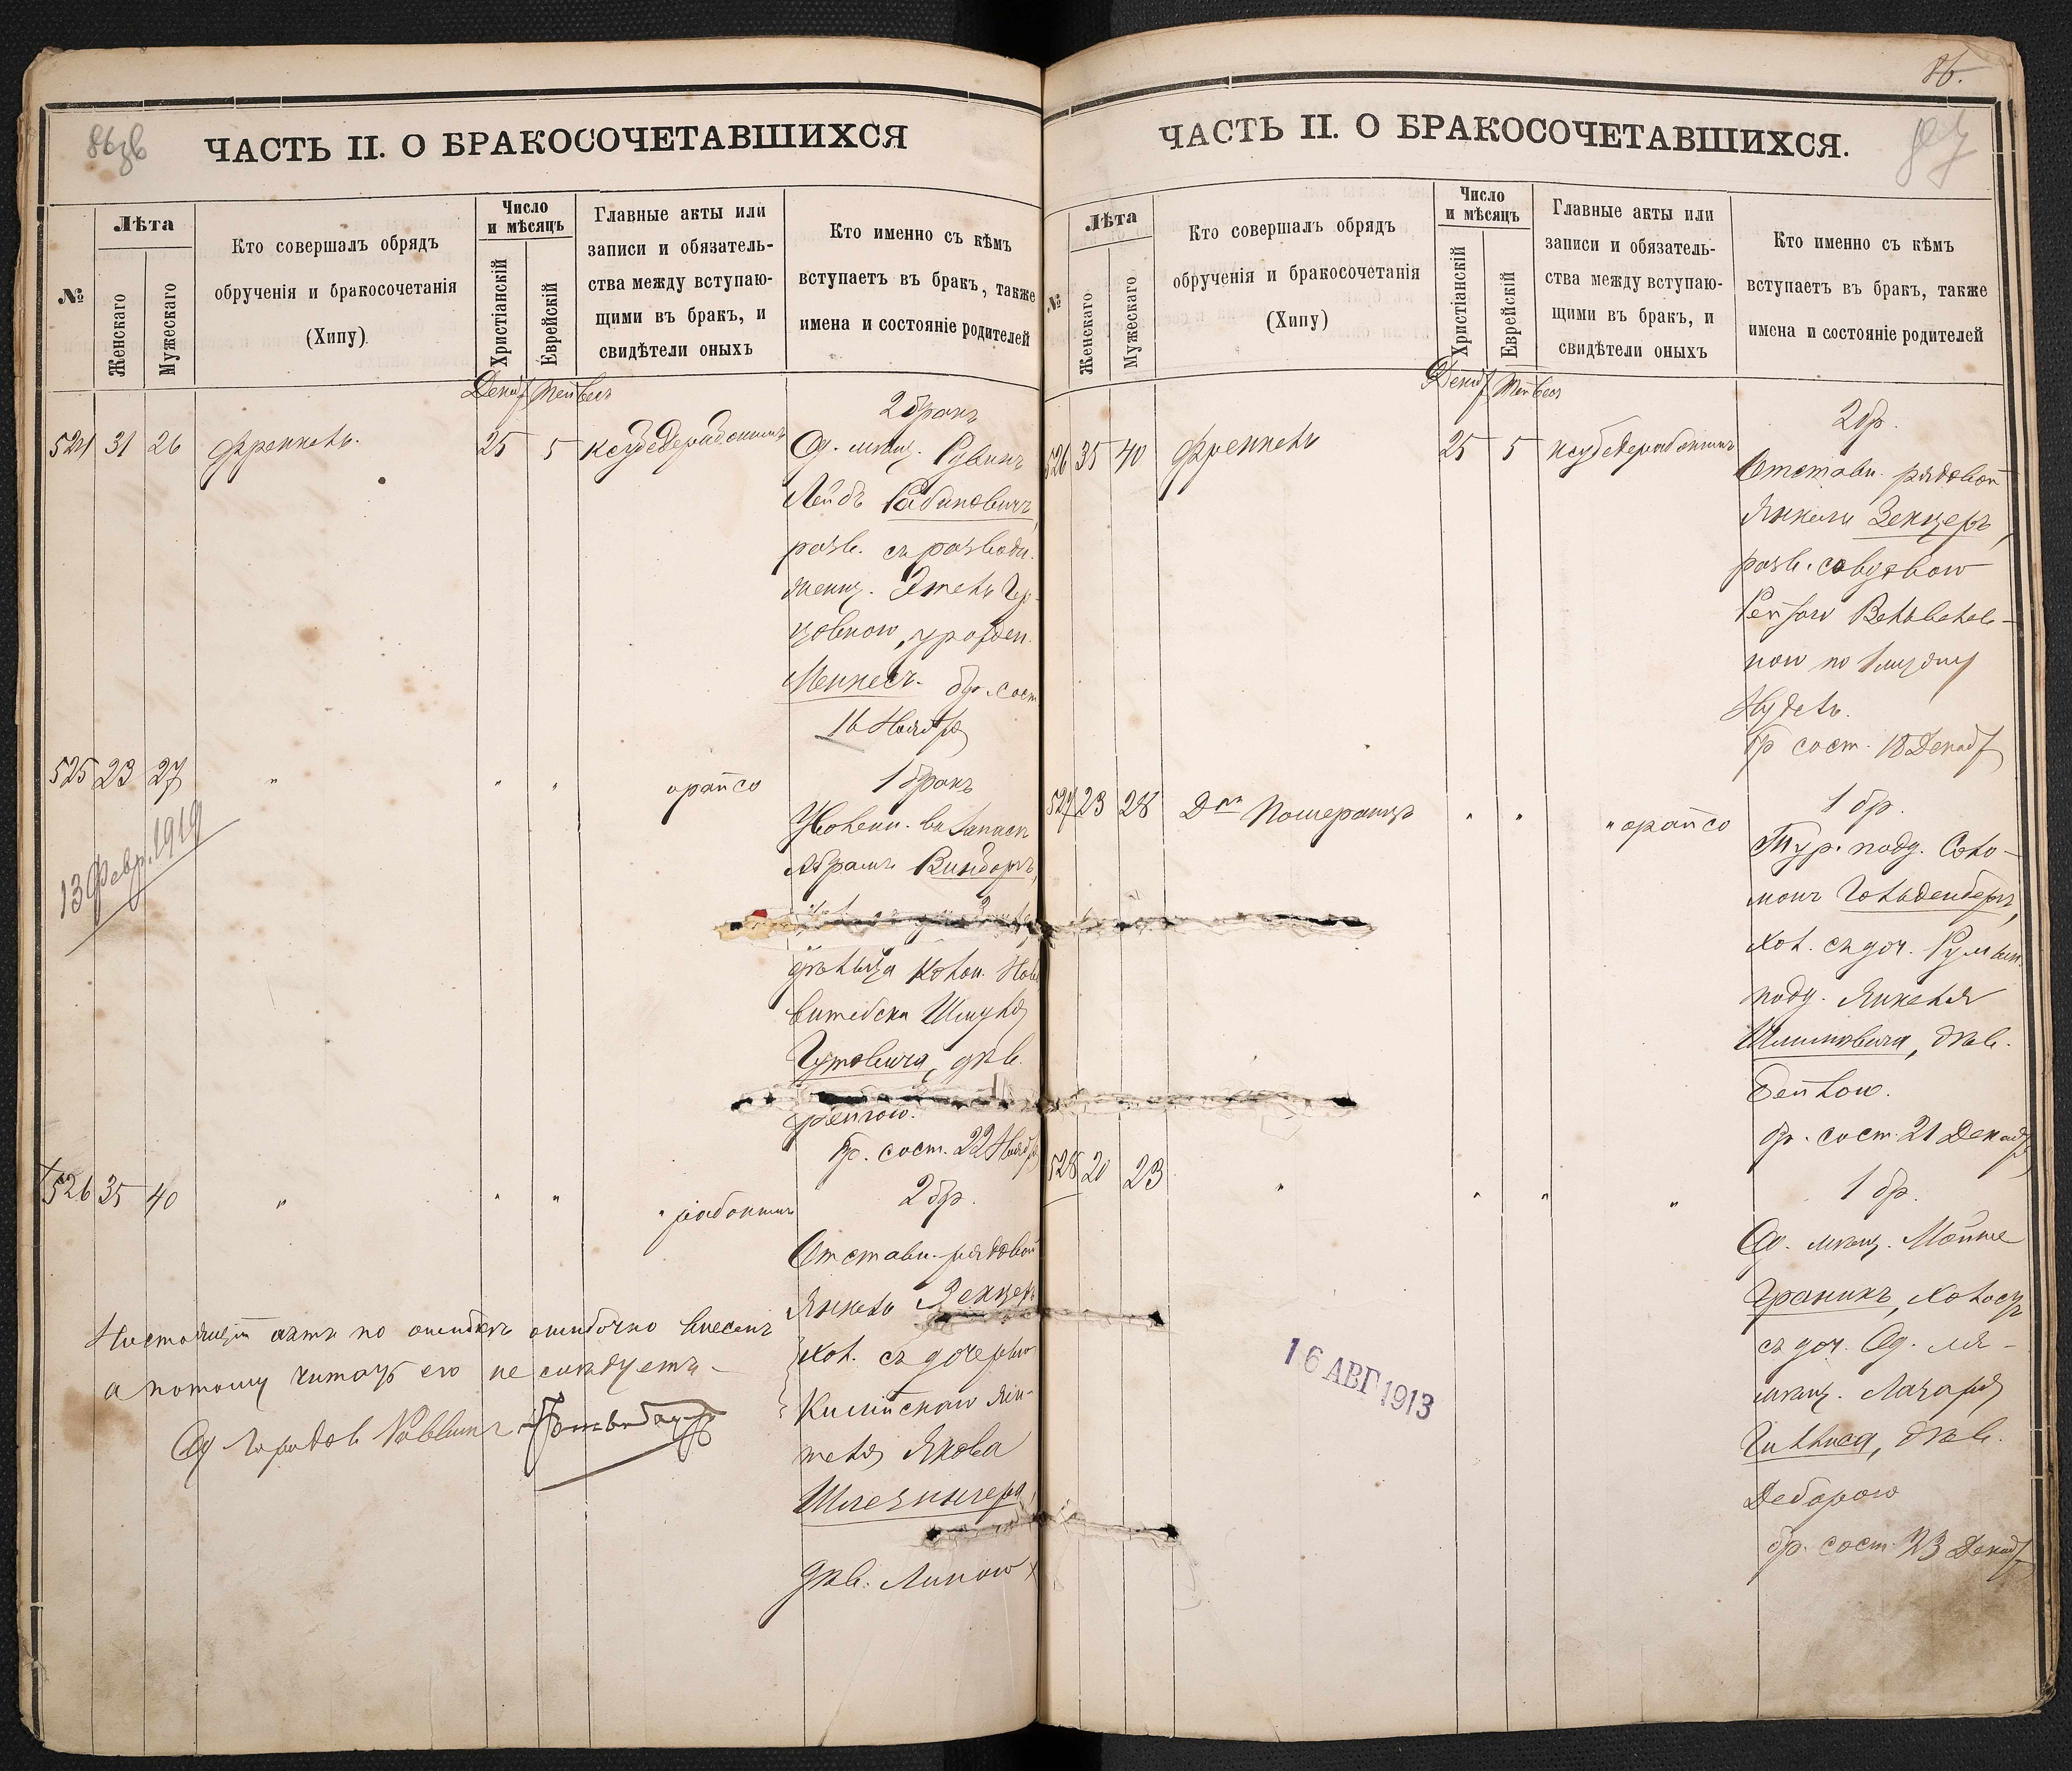 86.
ЧАСТЬ II. О БРАКОСОЧЕТАВШИХСЯ
№
Лѣта
Женскаго
Мужескаго
Кто совершалъ обрядъ
обрученія и бракосочетанія
(Хипу)
Число
и мѣсяцъ
Христіанскій
Еврейскій
Главные акты или
записи и обязатель-
ства между вступаю-
щими въ бракъ, и
свидѣтели оныхъ
Кто именно съ кѣмъ
вступаетъ въ бракъ, также
имена и состояніе родителей
Декаб Тейвесъ
524 31 26 Френкель. 25 5
2 бракъ
Од. мѣщ. Рувинъ
Лейбъ Рабиновичъ,
разв. съ разведен.
женщ. Этель Гер-
цовною, урожден.
Менкесъ. бр. сост.
16 Ноября
525 23 27 " " " орайсо
1 бракъ
13 Февр. 1919
Уволенн. въ запасъ
Абрамъ Виндоръ,
Витебска Шмуля
Гутовича, дѣв.
бр. сост. 22 Ноябр
526 35 40 " " " " работинъ
2 бр.
Отставн. рядовой
Янкель Зекцеръ
хол. съ дочерью
Килійскаго жи-
теля Якова
Шлезингера,
дѣв. Липою
Настоящій актъ по ошибкѣ ошибочно внесенъ
а потому читать его не слѣдуетъ
Од Городов Раввинъ
ЧАСТЬ II. О БРАКОСОЧЕТАВШИХСЯ.
№
Лѣта
Женскаго
Мужескаго
Кто совершалъ обрядъ
обрученія и бракосочетанія
(Хипу)
Число
и мѣсяцъ
Христіанскій
Еврейскій
Главные акты или
записи и обязатель-
ства между вступаю-
щими въ бракъ, и
свидѣтели оныхъ
Кто именно съ кѣмъ
вступаетъ въ бракъ, также
имена и состояніе родителей
Декаб Тейвесъ
526 35 40 Френкель 25 5
2 бр.
Отставн. рядовой
Янкель Зекцеръ,
разв. со вдовою
Рейзою Вольволь-
ною по 1 мужу
Нудель.
бр сост. 18 Декаб
527 23 28 Д-ръ Померанцъ " " " орайсо
1 бр.
Тур. подд. Соло-
монъ Гольденбергъ,
хол. съ доч. Румын.
подд. Янкеля
Илиовича, дѣв.
Бейлою.
бр. сост. 21 Декаб
528 20 23 " " " "
1 бр.
Од. мѣщ. Мойше
Граникъ, холост
съ доч. Од. мѣ-
мѣщ. Лазаря
Гиллиса, дѣв.
Деборою
бр. сост. 23 Декаб
16 АВГ 1913